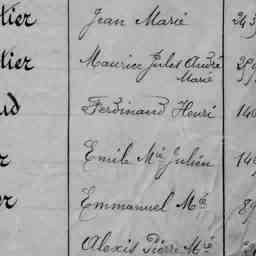 tier Jean Marie 243
tier Maurice Jules André
Marie
ud Ferdinand Henri 140
r Emile Mie Julien 140
er Emmanuel Mie 89
Alexis Pierre Mie